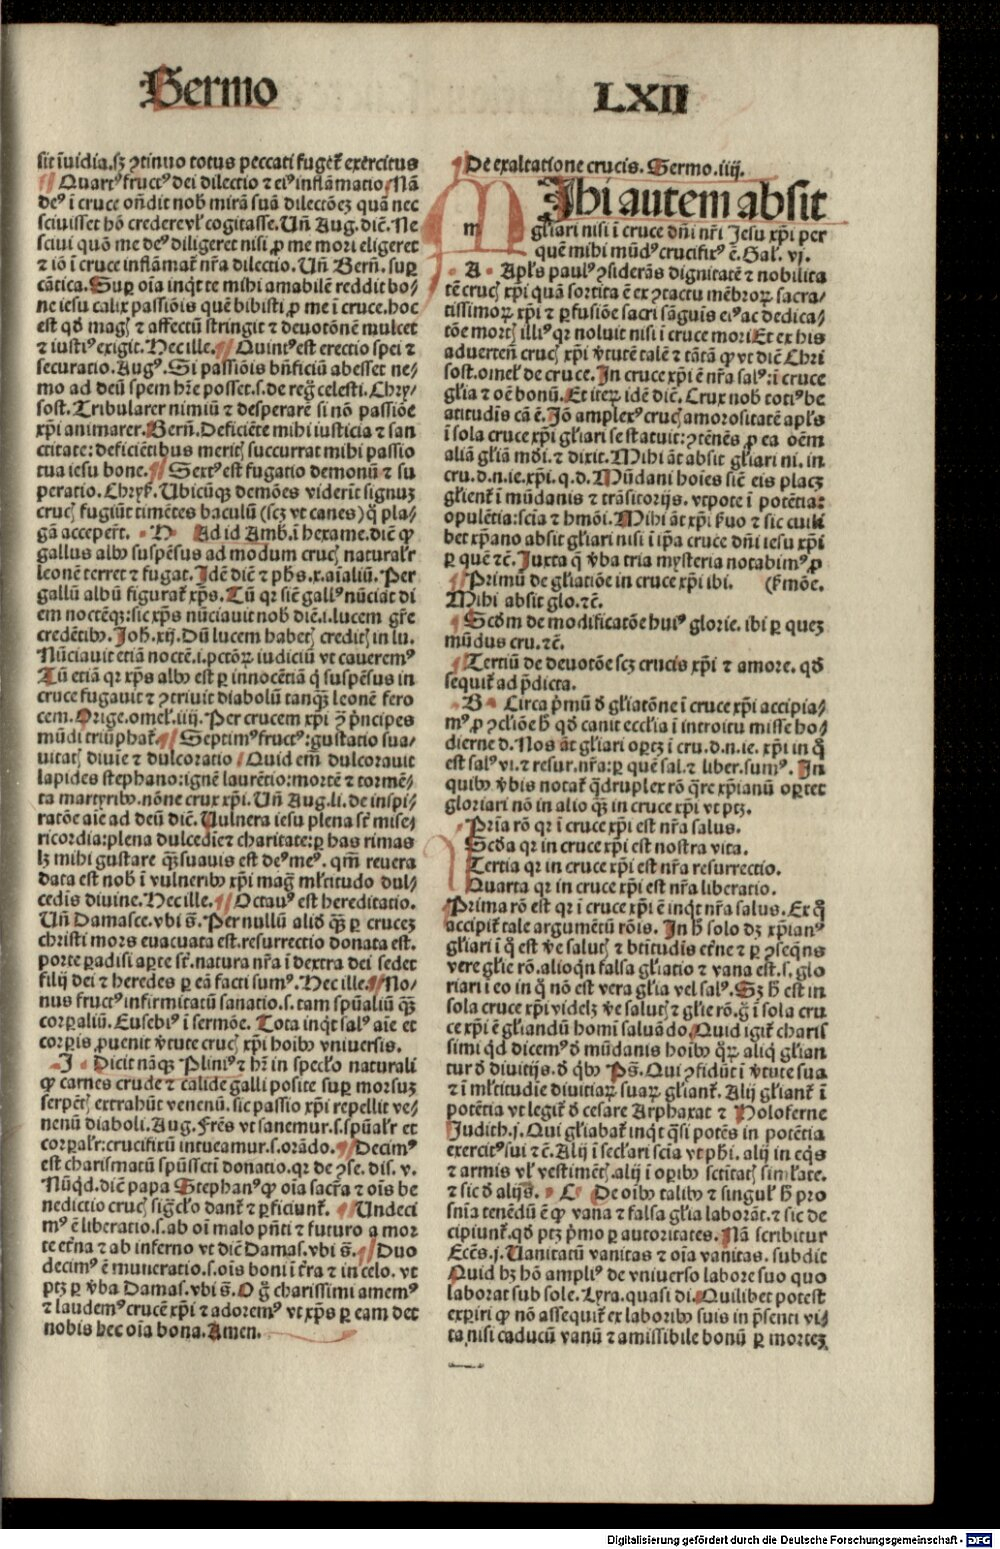 Sermo
LXII
sit īuidia.sꝫ ꝯtinuo totus peccati fugetˀ exercitus
Quartꝰ fructꝰ dei dilectio ⁊ eiꝰ inflāmatio. Nā
deꝰ ī cruce oñdit nob mirā suā dilectōeꝫ quā nec
sciuisset hō credere vl' cogitasse. Vñ Aug. diē. Ne
sciui quō me deꝰ diligeret nisi ꝓ me mori eligeret
⁊ iō ī cruce inflāmatˀ nr̄a dilectio. Vñ Bern̄. suꝑ
cātica. Suꝑ oīa inq̄t te mihi amabilē reddit bo⸗
ne iesu calix passiōis quē bibisti ꝓ me ī cruce. hoc
est qd̄ magꝭ ⁊ affectū stringit ⁊ deuotōnē mulcet
⁊ iustiꝰ exigit. Hec ille. Quintꝰ est erectio spei ⁊
securatio. Augꝰ. Si passiōis bn̄ficiū abesset ne⸗
mo ad deū spem hr̄e posset. s. de regꝭ celesti. Chry⸗
sost. Tribularer nimiū ⁊ desperarē si nō passiōe
xp̄i animarer. Bern̄. Deficiēte mihi iusticia ⁊ san
ctitate: deficiētibus meritꝭ succurrat mihi passio
tua iesu bone. Sextꝰ est fugatio demonū ⁊ su
peratio. Chryẜ. Vbicūqꝫ demōes viderīt signuꝫ
crucꝭ fugiūt timētes baculū (scꝫ vt canes) q̄ pla⸗
gā acceperūt. H Ad id Amb. ī hexame. diē ꝙ
gallus albꝰ suspēsus ad modum crucꝭ naturalr̄
leonē terret ⁊ fugat. Idē diē ⁊ ph̄s. x. aīaliū. Per
gallū albū figuratˀ xp̄s. Tū qr siē gallꝰ nūciat di
em noctēqꝫ: sic xp̄s nūciauit nob diē. i. lucem gr̄e
credētibꝰ. Joh̄. xij. Dū lucem habetꝭ creditꝭ in lu.
Nūciauit etiā noctē. i. pctōꝝ iudiciū vt caueremꝰ
Tū etiā qr xp̄s albꝰ est ꝑ innocētiā q̄ suspēsus in
cruce fugauit ⁊ ꝯtriuit diabolū tanqꝫ leonē fero
cem. Orige. omel'. iiij. Per crucem xp̄i ꝫ pn̄cipes
mūdi triūphatˀ. Septimꝰ fructꝰ: gustatio sua⸗
uitatꝭ diuīe ⁊ dulcoratio Quid em̄ dulcorauit
lapides stephano: ignē laurētio: mortē ⁊ tormē⸗
ta martyribꝰ. nōne crux xp̄i. Vñ Aug. li. de inspi⸗
ratōe aīe ad deū diē. Vulnera iesu plena st̄ mise⸗
ricordia: plena dulcedīe ⁊ charitate: ꝑ has rimas
lꝫ mihi gustare qꝫ suauis est deꝰ meꝰ. qm̄ reuera
data est nob ī vulneribꝰ xp̄i magꝭ ml̄titudo dul⸗
cedis diuine. Hec ille. Octauꝰ est hereditatio.
Vñ Damasce. vbi s̄. Per nullū aliđ qꝫ ꝑ cruceꝫ
christi mors euacuata est. resurrectio donata est.
porte ꝑadisi aꝑte st̄. natura nr̄a ī dextra dei sedet
filij dei ⁊ heredes ꝑ eā facti sumꝰ. Hec ille. No⸗
nus fructꝰ infirmitatū sanatio. s. tam spūaliū qꝫ
corꝑaliū. Eusebiꝰ ī sermōe. Tota inq̄t salꝰ aīe et
corꝑis ꝓuenit v̄tute crucꝭ xp̄i hoībꝰ vniuersis.
J Dicit nāqꝫ Pliniꝰ ⁊ hr̄ in spec̄lo naturali
ꝙ carnes crude ⁊ calide galli posite suꝑ morsuꝫ
serpētꝭ extrahūt venenū. sic passio xp̄i repellit ve⸗
nenū diaboli. Aug. Frēs vt sanemur. s. spūalr̄ et
corꝑalr̄: crucifixū intueamur. s. orādo. Decimꝰ
est charismatū spūssct̄i donatio. qr de ꝯse. dis. v.
Nūqd. diē papa Stephanꝰ ꝙ oīa sacr̄a ⁊ oīs be
nedictio crucꝭ sigc̄lo dantˀ ⁊ ꝑficiuntˀ. Vndeci
mꝰ ē liberatio. s. ab oī malo pn̄ti ⁊ futuro a mor
te et̄na ⁊ ab inferno vt diē Damas. vbi s̄. Duo
decimꝰ ē muneratio. s. oīs boni ī t̄ra ⁊ in celo. vt
ptꝫ ꝑ v̄ba Damas. vbi s̄. O g̊ charissimi amemꝰ
⁊ laudemꝰ crucē xp̄i ⁊ adoremꝰ vt xp̄s ꝑ eam det
nobis hec oīa bona. Amen.
De exaltatione crucis. Sermo. iiij.
m
Ihi autem absit
gl̄iari nisi ī cruce dn̄i nr̄i Jesu xp̄i per
quē mihi mūdꝰ crucifixꝰ ē. Gal'. vj.
A Apl̄s paulꝰ ꝯsiderās dignitatē ⁊ nobilita
tē crucꝭ xp̄i quā sortita ē ex ꝯtactu mēbroꝝ sacra⸗
tissimoꝝ xp̄i ⁊ ꝑfusiōe sacri sāguīs eiꝰ ac dedica⸗
tōe mortꝭ illiꝰ qr noluit nisi ī cruce mori Et ex his
aduertēn crucꝭ xp̄i v̄tutē talē ⁊ tātā ꝙ vt diē Chri
sost. omel' de cruce. In cruce xp̄i ē nr̄a salꝰ: ī cruce
gl̄ia ⁊ oē bonū. Et iteꝝ idē diē. Crux nob totiꝰ be
atitudīs cā ē. Jō amplexꝰ crucꝭ amorositatē apl̄s
ī sola cruce xp̄i gl̄iari se statuit: ꝯtēnēs ꝓ ea oēm
aliā gl̄iā mđi. ⁊ dixit. Mihi āt absit gl̄iari ni. in
cru. d. n. ie. xp̄i. q. d. Mūdani hoīes siē eis placꝫ
gl̄ientˀ ī mūdanis ⁊ trāsitorijs. vtpote ī potētia:
opulētia: scīa ⁊ hmōi. Mihi āt xp̄i ẜuo ⁊ sic cuili
bet xp̄ano absit gl̄iari nisi ī ip̄a cruce dn̄i iesu xp̄i
ꝑ quē ⁊c̄. Juxta q̄ v̄ba tria mysteria notabimꝰ ꝓ
Primū de gl̄iatiōe in cruce xp̄i ibi. (ẜmōe.
Mihi absit glo. ⁊c̄.
Scđm de modificatōe huiꝰ glorie. ibi ꝑ queꝫ
mūdus cru. ⁊c̄.
Tertiū de deuotōe scꝫ crucis xp̄i ⁊ amore. qđ
sequitˀ ad p̄dicta.
B Circa p̄mū đ gl̄iatōne ī cruce xp̄i accipia⸗
mꝰ ꝓ ꝯcl̄iōe h̄ qđ canit eccl̄ia ī introitu misse ho⸗
dierne đ. Nos āt gl̄iari oꝑtꝫ ī cru. d. n. ie. xp̄i in q̊
est salꝰ vi. ⁊ resur. nr̄a: ꝑ quē sal. ⁊ liber. sumꝰ. In
quibꝰ v̄bis notatˀ q̄druplex rō q̄re xp̄ianū oꝑtet
gloriari nō in alio qꝫ in cruce xp̄i vt ptꝫ.
Prīa rō qr ī cruce xp̄i est nr̄a salus.
Scđa qr in cruce xp̄i est nostra vita.
Tertia qr in cruce xp̄i est nr̄a resurrectio.
Quarta qr in cruce xp̄i est nr̄a liberatio.
Prima rō est qr ī cruce xp̄i ē inq̄t nr̄a salus. Ex q̊
accipitˀ tale argumētū rōis. In h̄ solo đꝫ xp̄ianꝰ
gl̄iari ī q̊ est v̄e salutꝭ ⁊ bt̄itudis et̄ne ⁊ ꝑ ꝯseqn̄s
vere gl̄ie rō. alioqn falsa gl̄iatio ⁊ vana est. s. glo
riari ī eo in q̊ nō est vera gl̄ia vel salꝰ. Sꝫ h̄ est in
sola cruce xp̄i videlꝫ v̄e salutꝭ ⁊ gl̄ie rō. g̊ ī sola cru
ce xp̄i ē gl̄iandū homī saluādo. Quid igitˀ charis
simi qđ dicemꝰ đ mūdanis hoībꝰ qꝝ aliq̄ glian
tur đ diuitijs. đ qbꝰ Ps̄. Qui ꝯfidūt ī v̄tute sua
⁊ ī ml̄titudīe diuitiaꝝ suaꝝ gl̄iantˀ. Alij gl̄iantˀ ī
potētia vt legitˀ đ cesare Arphaxat ⁊ Holoferne
Judith. j. Qui gl̄iabatˀ inq̄t q̄si potēs in potētia
exercitꝰ sui ⁊ c̄. Alij ī secl̄ari scīa vt ph̄i. alij in eq̄s
⁊ armis vl' vestimētꝭ. alij ī oꝑibꝰ sct̄itatꝭ siml̄ate.
⁊ sic đ alijs. C De oībꝰ talibꝰ ⁊ singul' h̄ pro
sn̄ia tenēdū ē ꝙ vana ⁊ falsa gl̄ia laborāt. ⁊ sic de
cipiuntˀ. qđ ptꝫ p̄mo ꝑ autoritates. Nā scribitur
Ecc̄s. j. Vanitatū vanitas ⁊ oīa vanitas. subdit
Quid hꝫ hō ampliꝰ de vniuerso labore suo quo
laborat sub sole. Lyra. quasi di. Quilibet potest
exꝑiri ꝙ nō assequitˀ ex laboribꝰ suis in p̄senti vi⸗
ta nisi caducū vanū ⁊ amissibile bonū ꝑ morteꝫ
Digitalisierung gefördert durch die Deutsche Forschungsgemeinschaft - DFG